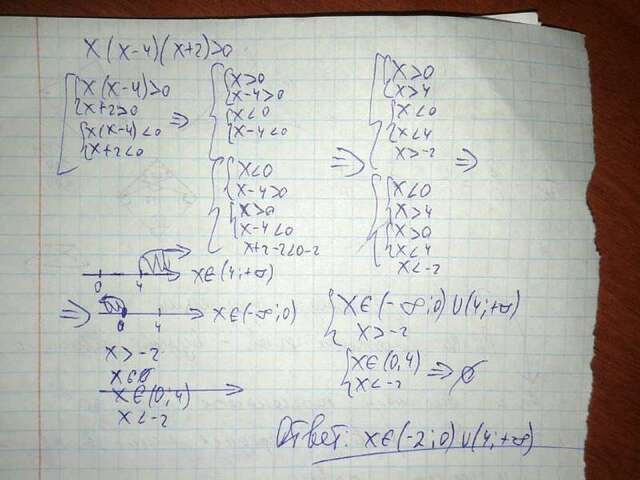 x(x-4)(x+2)>0
x(x-4)>0
x+2>0
x(x-4)<0
x+2<0
=>
x>0
x-4>0
x<0
x-4<0
x<0
x-4>0
x>0
x-4<0
x+2-2<0-2
=>
x>0
x>4
x<0
x<4
x>-2
x<0
x>4
x>0
x<4
x<-2
=>
0 4 x∈(4;+∞)
=> 0 4 x∈(-∞;0)
x>-2
x∈(0;4)
x<-2
x∈(-∞;0)∪(4;+∞)
x>-2
x∈(0,4)
x<-2
=> ∅
Ответ: x∈(-2;0)∪(4;+∞)